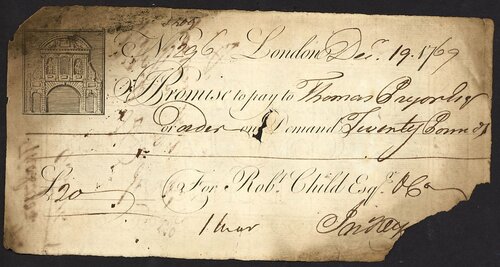 No. 1296 London Dec.r 19. 1769
I Promise to pay to Thomas Pryor Esqr
or order on Demand Twenty Pounds
£20 For Robt. Child Esqr. & Co
1 Mar